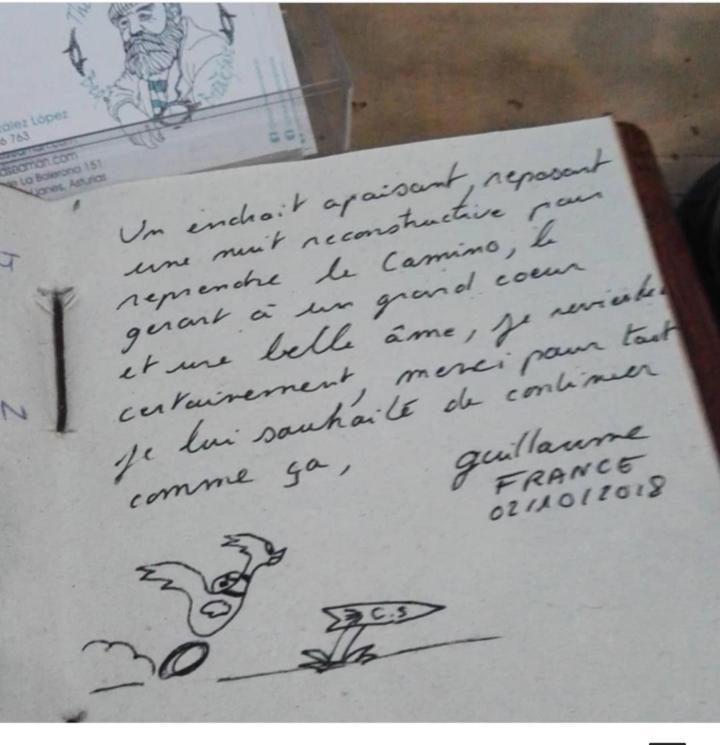 The
ález López
6 763
seaman.com
aseaman.com
La Bolerona 151
Llanes, Asturias
Un endroit apaisant, reposant
une nuit reconstructive pour
reprendre le Camino, le
gerant à un grand coeur
et une belle âme, je
certainement, merci pour tout
je lui souhaite de continuer
comme ça,
guillaume
FRANCE
02/10/2018
C.S